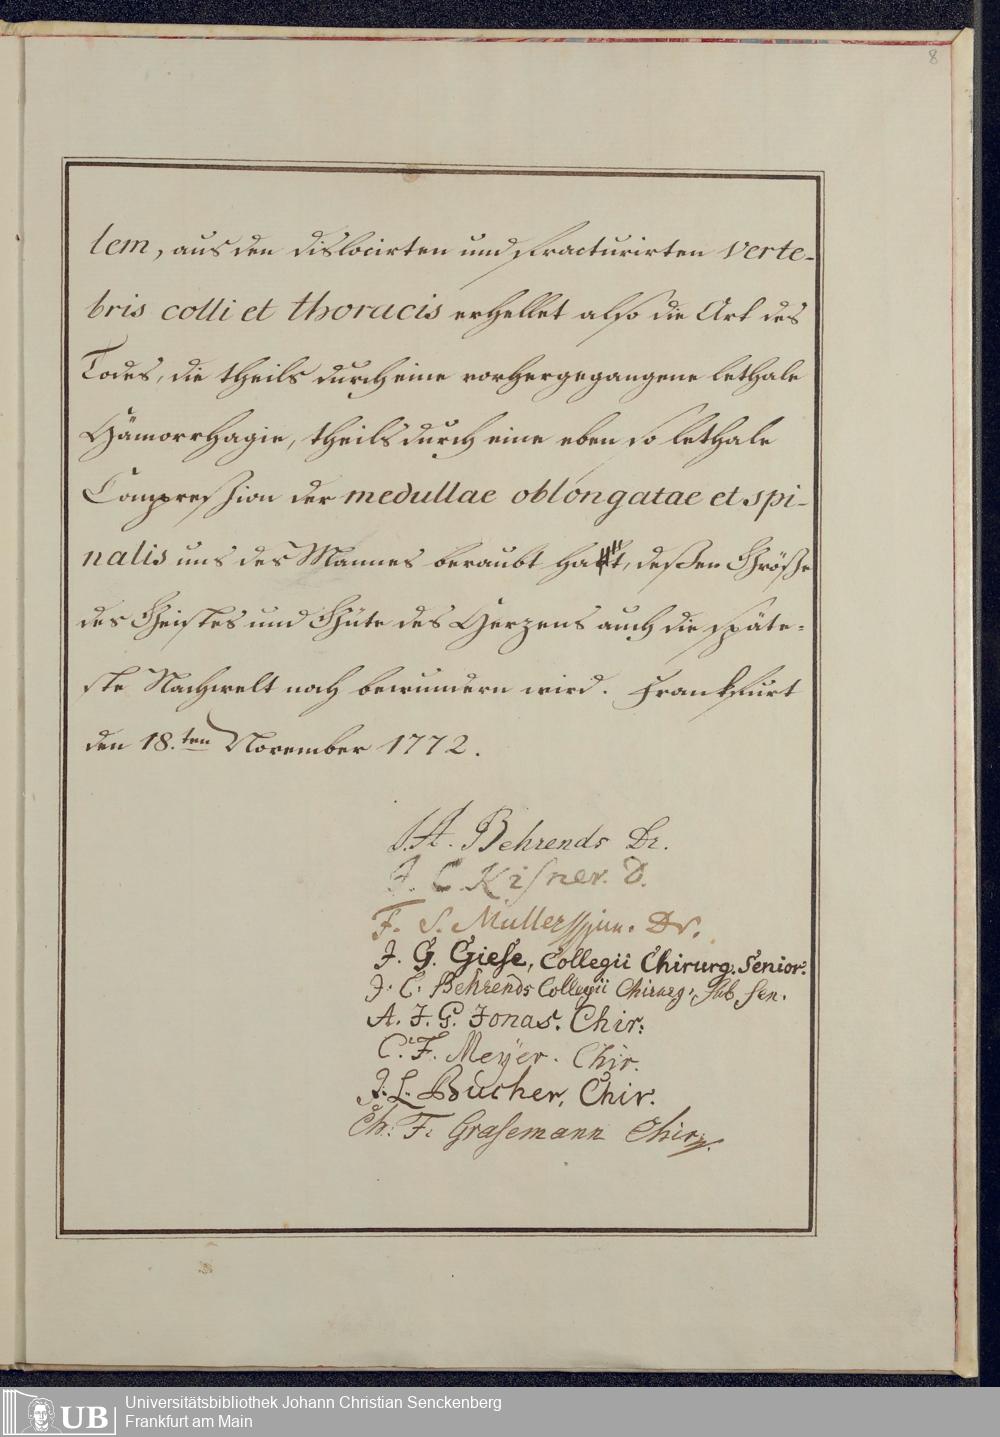 8
lem, aus den dislocirten und fracturirten Verte-
bris colli et thoracis erhellet also die Art des
Todes, die theils durch eine vorhergegangene lethale
Hämorrhagie, theils durch eine eben so lethale
Compression der medullae oblongatae et spi-
nalis uns des Mannes beraubt hat, deßen Größe
des Geistes und Güte des Herzens auch die späte-
ste Nachwelt noch bewundern wird. Franckfurt
den 18.ten November 1772.
J. A. Behrends Dr.
J. C. Kisner. D.
F. S. Müller jun. Dr.
J. G. Giese, Collegii Chirurg. Senior.
J. C. Behrends Collegii Chirurg. Sub Sen.
A. F. G. Jonas. Chir:
C. F. Meyer. Chir.
J. L. Bucher, Chir.
Ch. F. Grasemann Chir.
UB Universitätsbibliothek Johann Christian Senckenberg
Frankfurt am Main